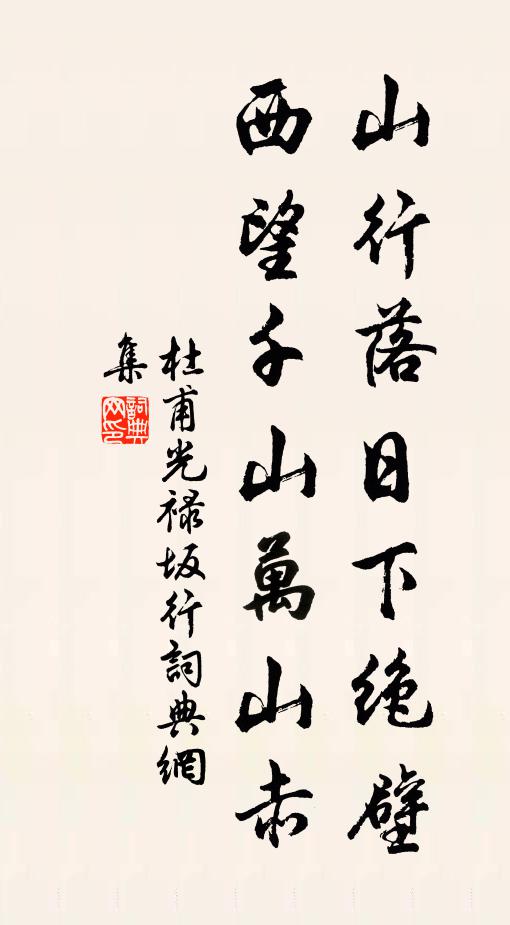 山行落日下绝壁
西望千山萬山赤
杜甫光禄坂行詞典網
集
詞典
网印